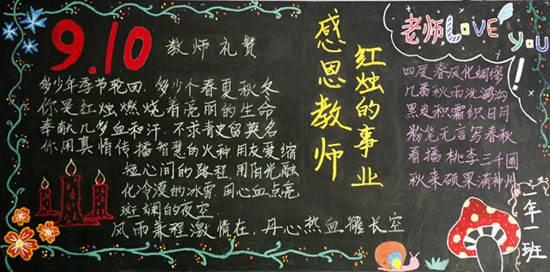 9.10
教师礼赞
多少年季节轮回,多少个春夏秋冬
你是红烛燃烧着亮丽的生命
奉献几多血和汗,不求青史留英名
你用真情传播智慧的火种 用友爱缩
短心间的路程 用阳光融
化冷漠的冰雪 用心血点亮
斑斓的夜空
风雨兼程激情在,丹心热血耀长空
感恩教师
红烛的事业
老师LOVE you
四度春风化绸缪
几番秋雨洗鸿沟
黑发积霜织日月
粉笔无言写春秋
看播桃李三千圃
秋来硕果满神州
二年一班